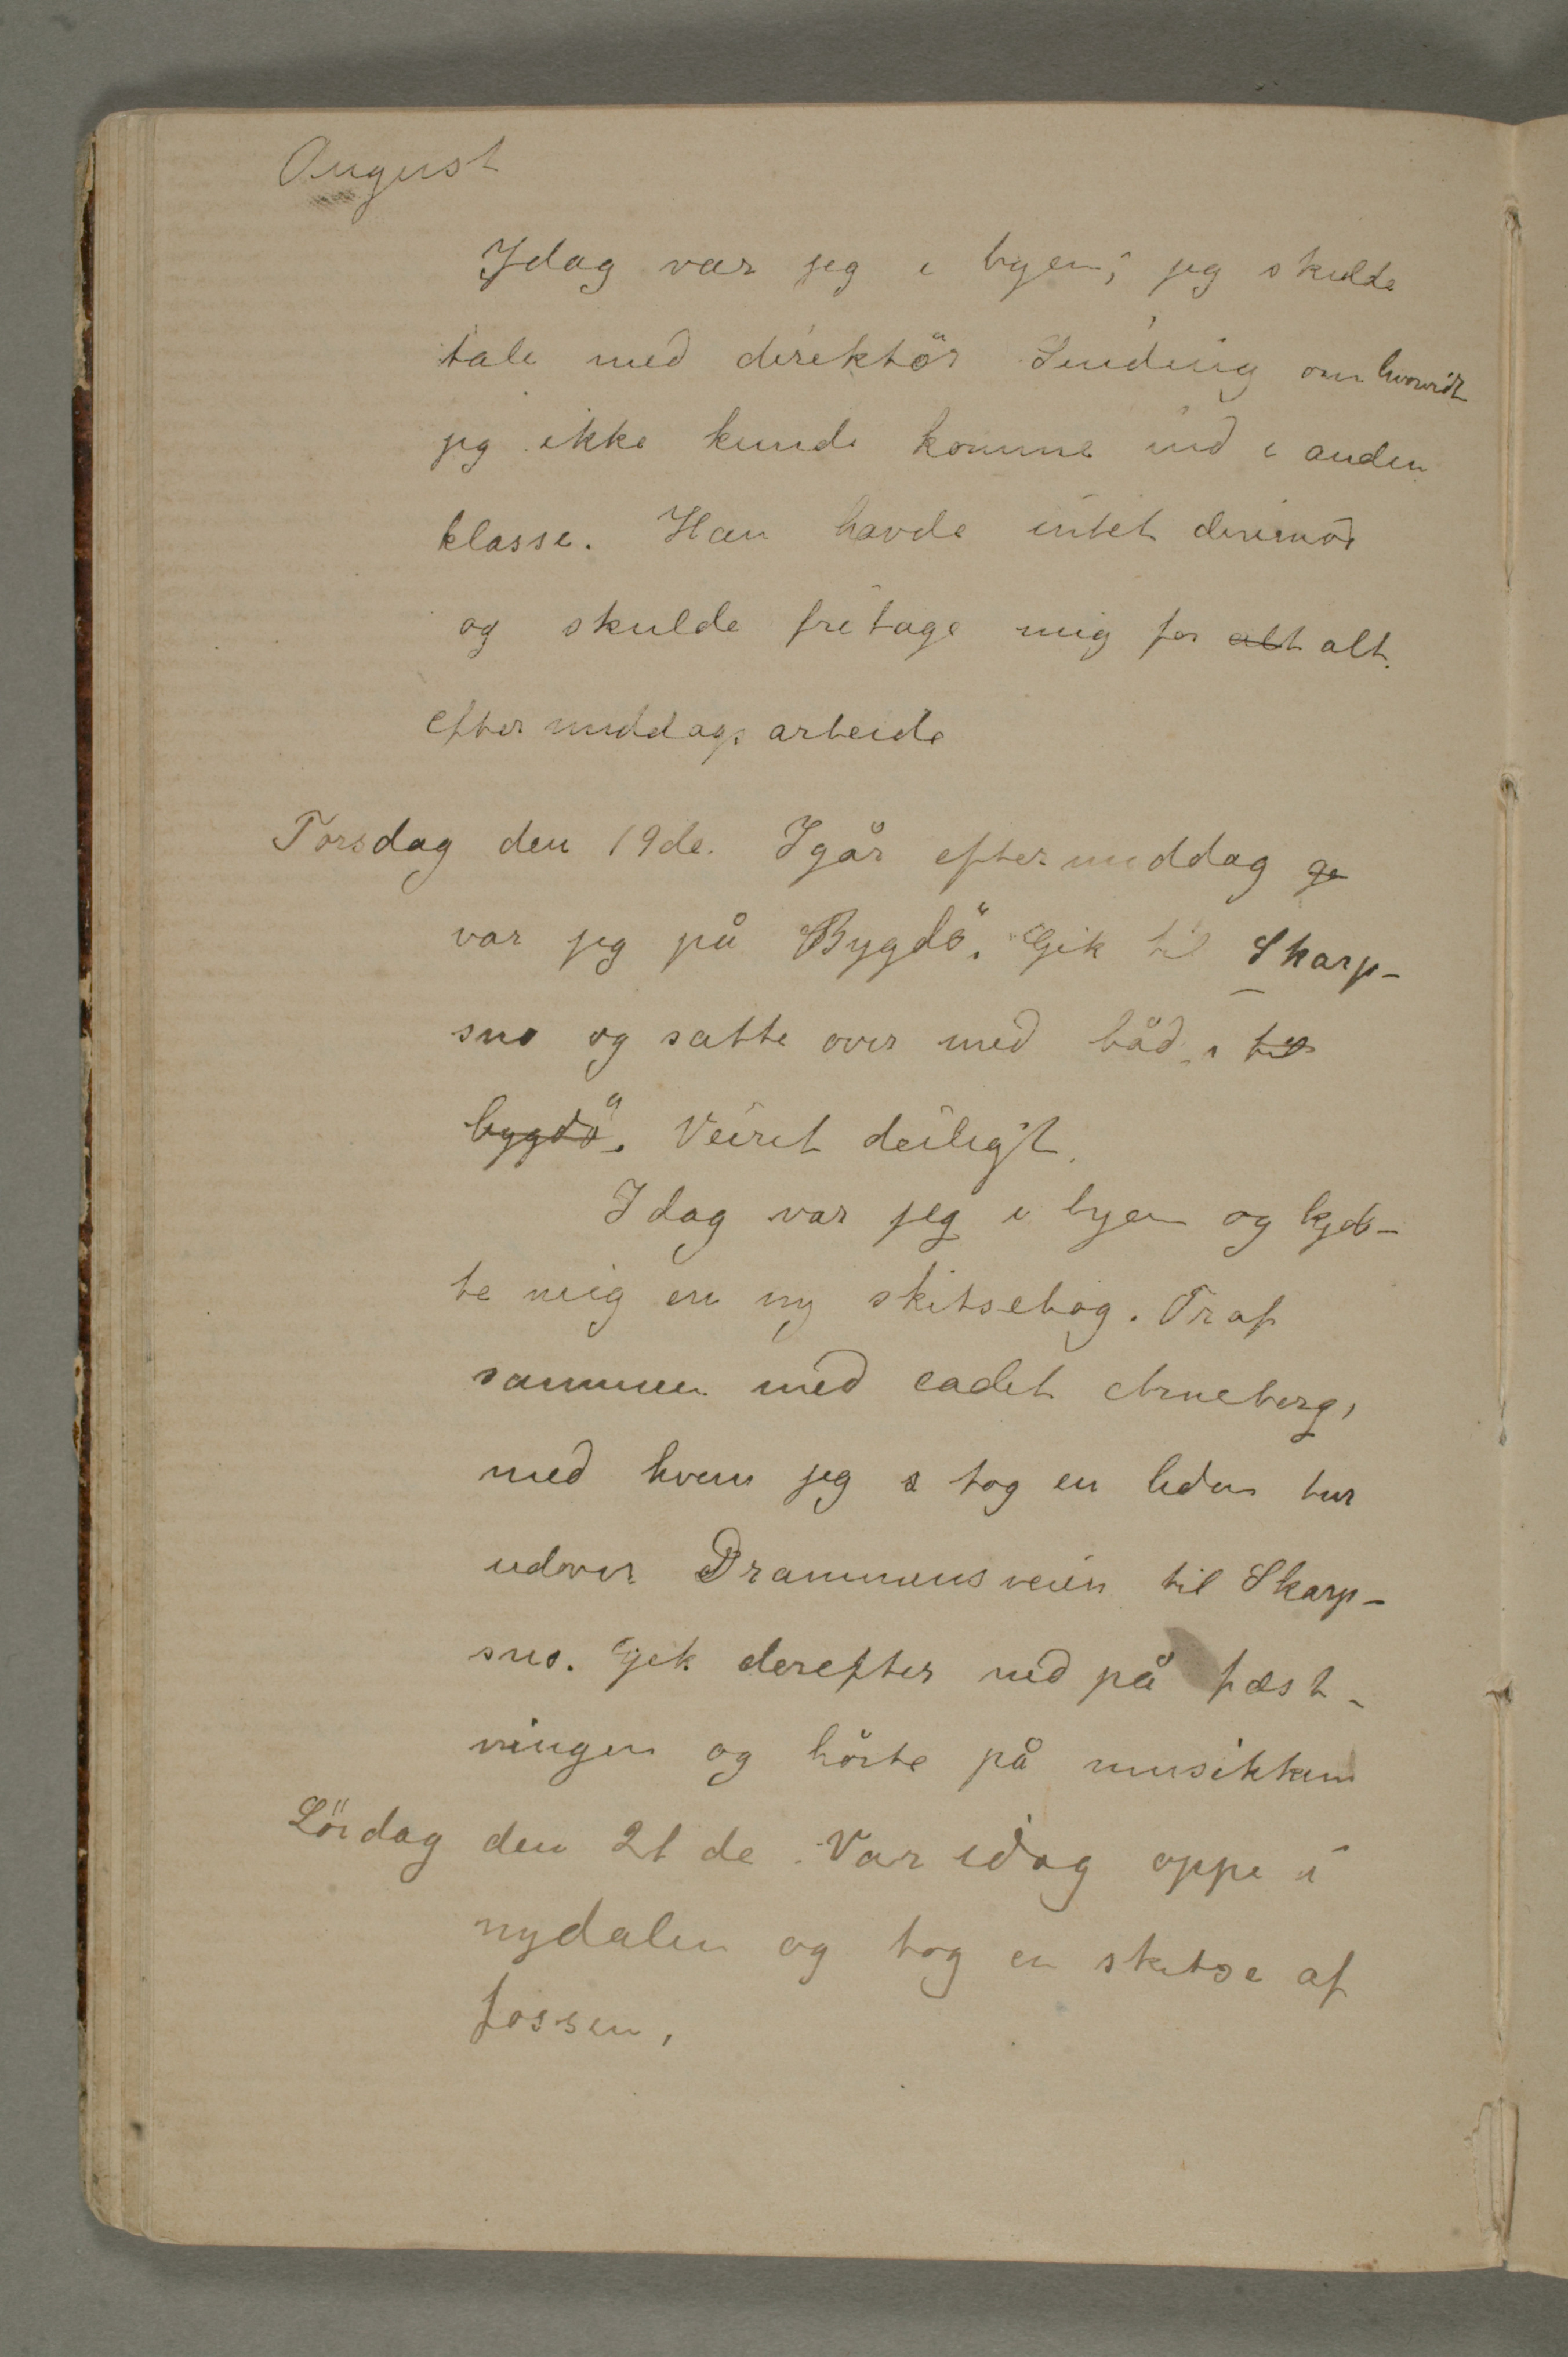 August
Idag var jeg i byen; jeg skulde
tale med direktör Sinding om hvorvidt
jeg ikke kunde komme ind i anden
klasse. Han havde intet derimod
og skulde fritage mig for alt alt
eftermiddagsarbeide
Torsdag den 19de. Igår eftermiddag ge
var jeg på Bygdö. Gik til Skarp-
sno og satte over med båd. til
bygdö. Veiret deiligt.
Idag var jeg i byen og kjöb-
te mig en ny skitsebog. Traf
sammen med cadet Arneberg,
med hvem jeg s tog en liden tur
udover Drammensveien til Skarp-
sno. Gik derefter ned på fæst-
ningen og hörte på musikken
Lördag den 21de. Var idag oppe i
nydalen og tog en skitse af
fossen.